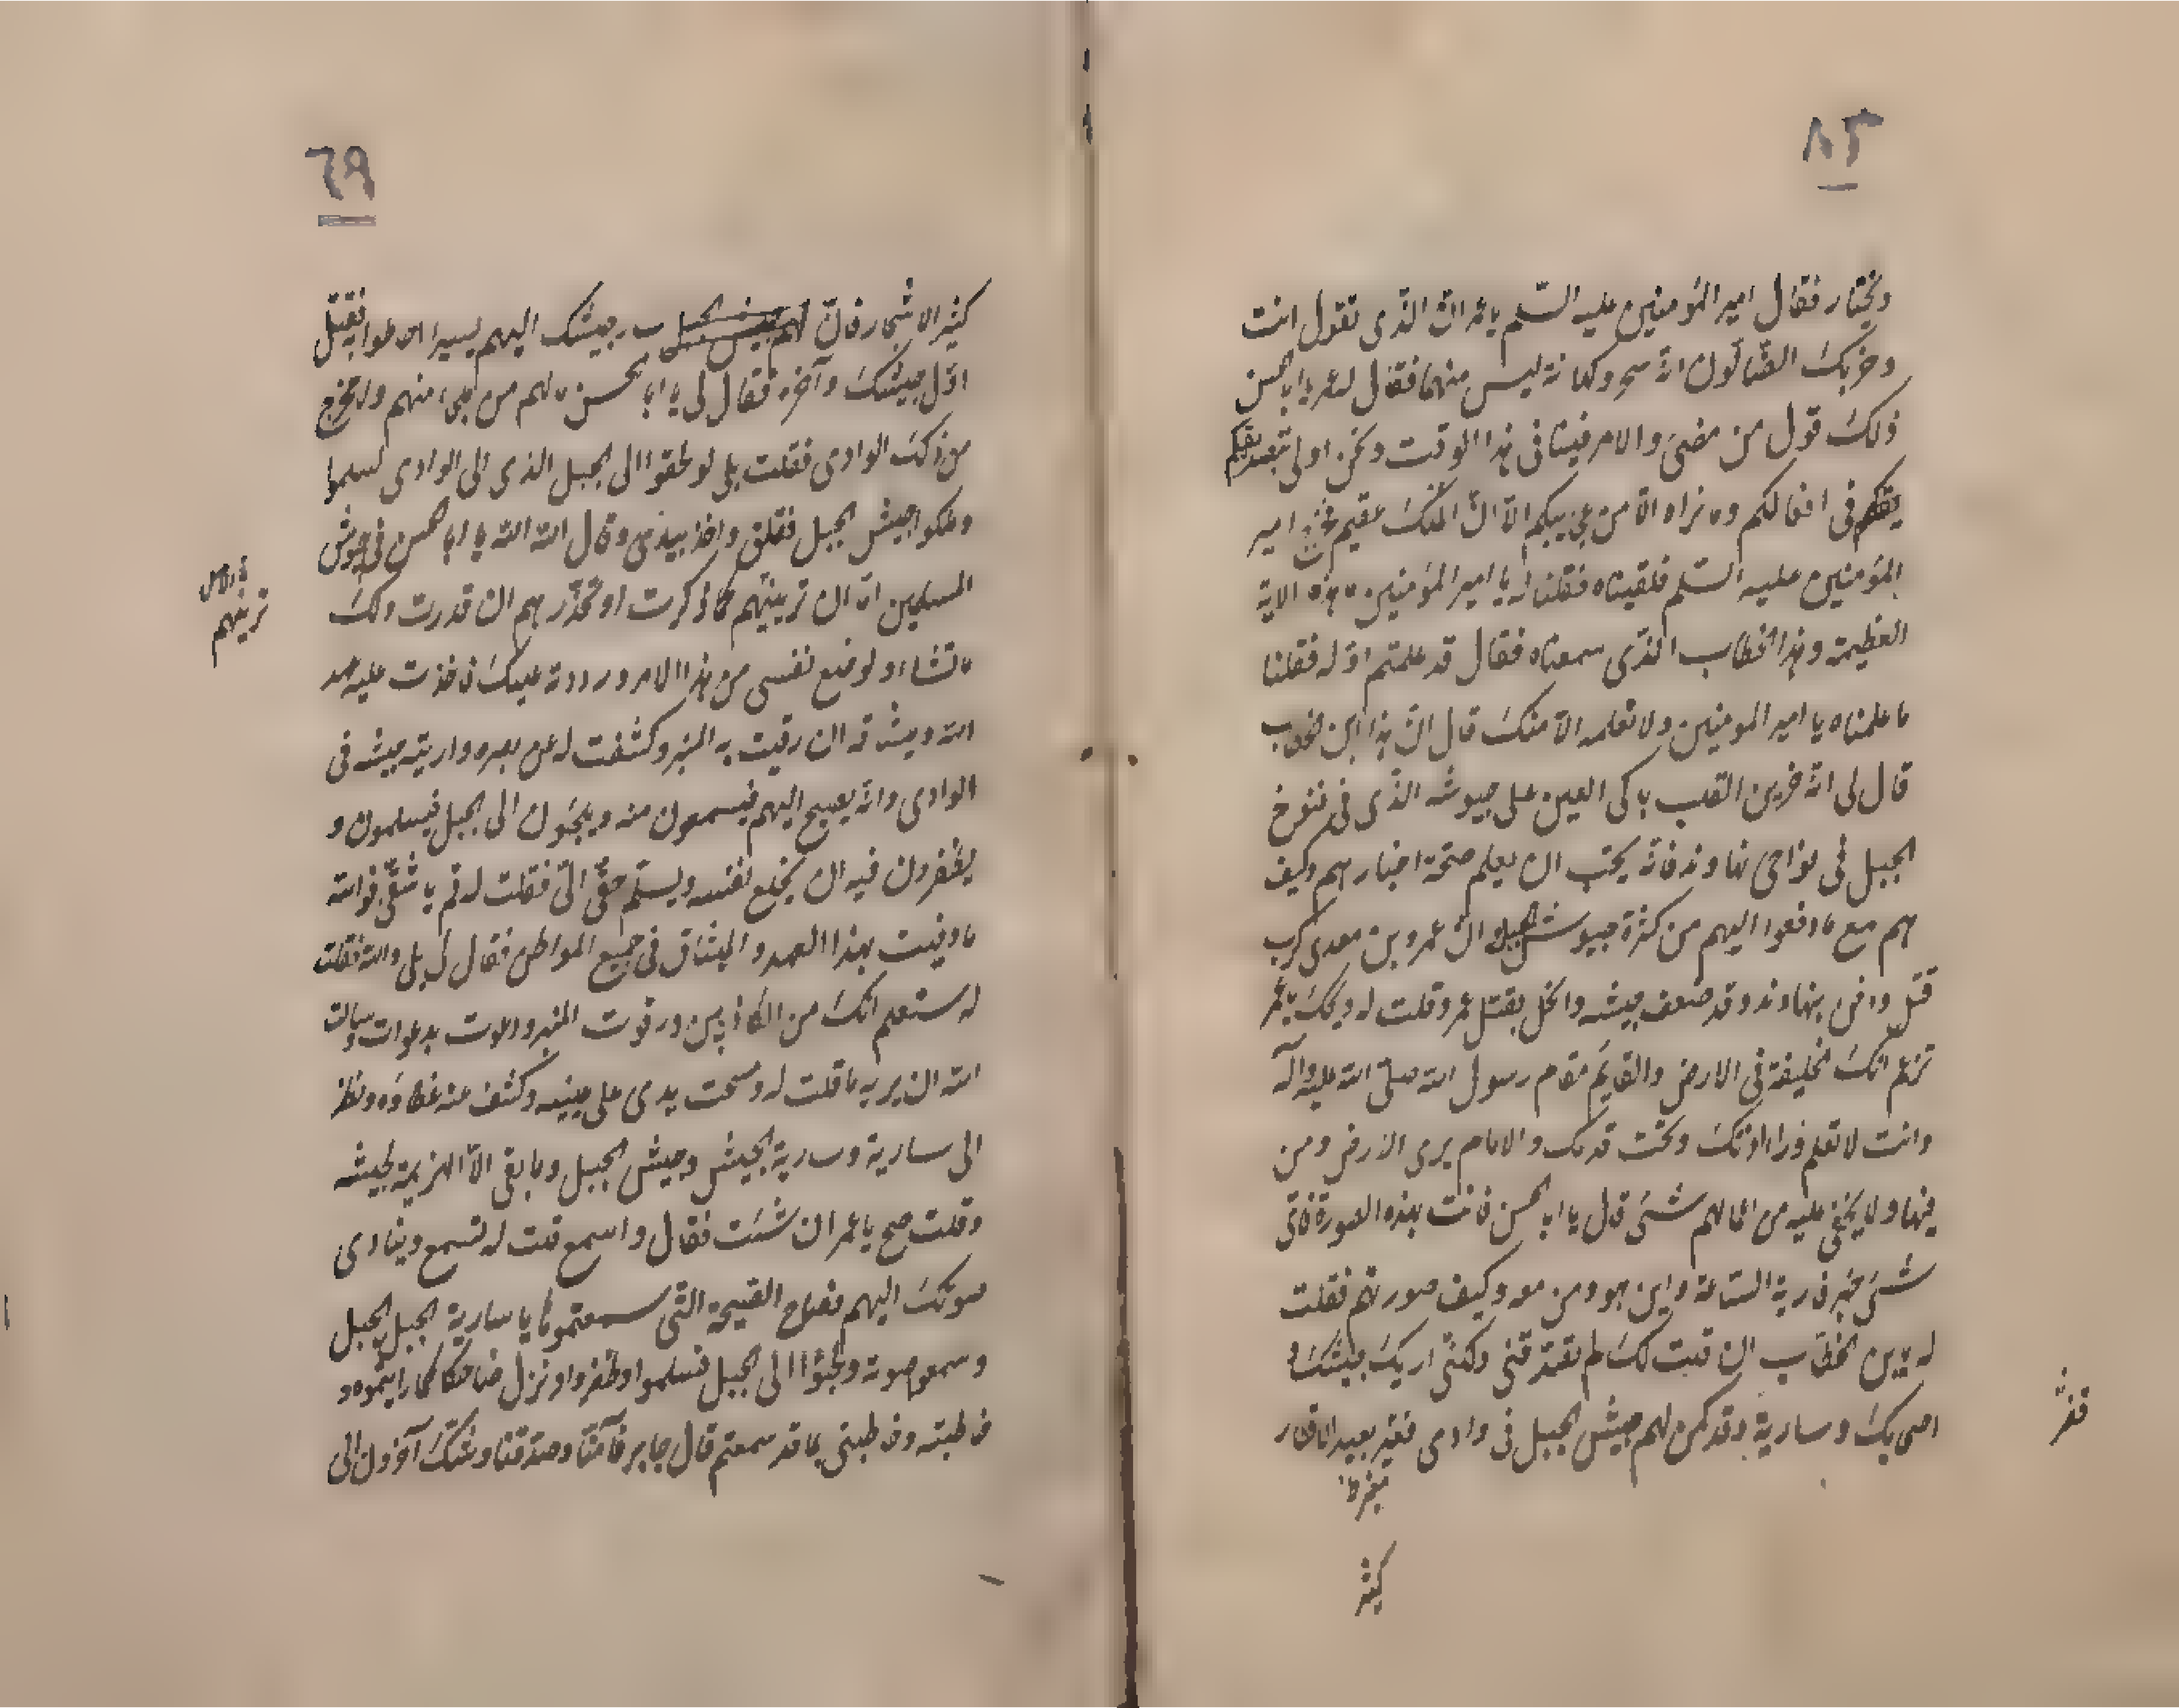 ٨٢
ويختار فقال امير المؤمنين عليه السّلم يا عمر انّ الذّى تقول انت
وحزبك الضّالّون انّه سحر وكهانة ليس منهما فقال له عمر يا ابا الحسن
ذلك قول من مضى والامر فينا فى هذا الوقت ونحن اولى بتصديقكم
فى افعالكم وما نراه الّا من عجايبكم الّا انّ الملك عقيم فخرج امير
المؤمنين عليه السّلم فلقيناه فقلنا له يا امير المؤمنين ما هذه الاية
العظيمة وهذا الخطاب الذّى سمعناه فقال قد علمتم اوّله فقلنا
ما علمناه يا امير المومنين ولا نعلمه الّا منك قال انّ هذا ابن الخطاب
قال لى انّه حزين القلب باكى العين على جيوشه الذّى فى فتوح
الجبل فى نواحى نهاوند فانّه يحبّ ان يعلم صحّة اخبارهم وكيف
هم مع ما دفعوا اليهم من كثرة جيوش الجبل وانّ عمرو بن معدى كرب
قتل ودفن بنهاوند وقد ضعف جيشه وانحل بقتل عمرو قلت له ويحك يا عمر
تزعم انّك الخليفة فى الارض والقايم مقام رسول الله صلّى الله عليه وآله
وانت لا تعلم وراء اذنك وتحت قدمك والامام يرى الارض ومن
فيها ولا يخفى عليه من اعمالهم شئ قال يا ابا الحسن فانت بهذه الصورة فاتى
شئ خبر سارية السّاعة واين هو ومن معه وكيف صورتهم فقلت
له يابن الخطّاب ان قلت لك لم تصدّقنى ولكنّى اريك جيشك و
اصحابك وسارية وقد كمن لهم جيش الجبل فى وادى قفر بعيد الاقطار
قفر
كثير
٦٩
كثير الاشجار فان سار جيشك اليهم يسيرا احاطوا به فقتل
اوّل جيشك وآخره فقال لى يا ابا الحسن ما لهم من ملجاء منهم ولا مخرج
من ذلك الوادى فقلت بلى لو لحقوا الى الجبل الذى الى الوادى لسلموا
وملكوا جيش الجبل فقلق واخذ بيدى وقال الله الله يا ابا الحسن فى جيوش
المسلمين امّا ان ترينيهم كما ذكرت او تحذّرهم ان قدرت ولك
ترينهم
ما تشاء ولو خلع نفسى من هذا الامر ورددته عليك فاخذت عليه عهد
الله وميثاقه ان رقيت به المنبر وكشفت له عن بصره واريته جيشه فى
الوادى وانّه يصيح اليهم فيسمعون منه ويلجؤن الى الجبل فيسلمون و
يظفرون فيه ان يخلع نفسه ويسلّم حقّى الىّ فقلت له قم يا شقّى فوالله
ما وفيت بهذا العهد والميثاق فى جميع المواطن فقال لى بلى والله فقلت
له ستعلم انّك من الكاذبين ورقوت المنبر ودعوت بدعوات وسالت
الله ان يريه ما قلت له ومسحت يدى على عينيه وكشف عنه غطاؤه ونظر
الى سارية وسرية الجيش وجيش الجبل وما بقى الّا الهزيمة لجيشه
وقلت صح يا عمر ان شئت فقال واسمع قلت له تسمع وينادى
صوتك اليهم فصاح الصيحة التى سمعتموها يا سارية الجبل الجبل
وسمعوا صوته ولجؤا الى الجبل فسلموا وظفروا ونزل ضاحكا كما رايتموه و
خاطبته وخاطبنى بما قد سمعتم قال جابر فآمنّا وصدّقنا وشكّ آخرون الى